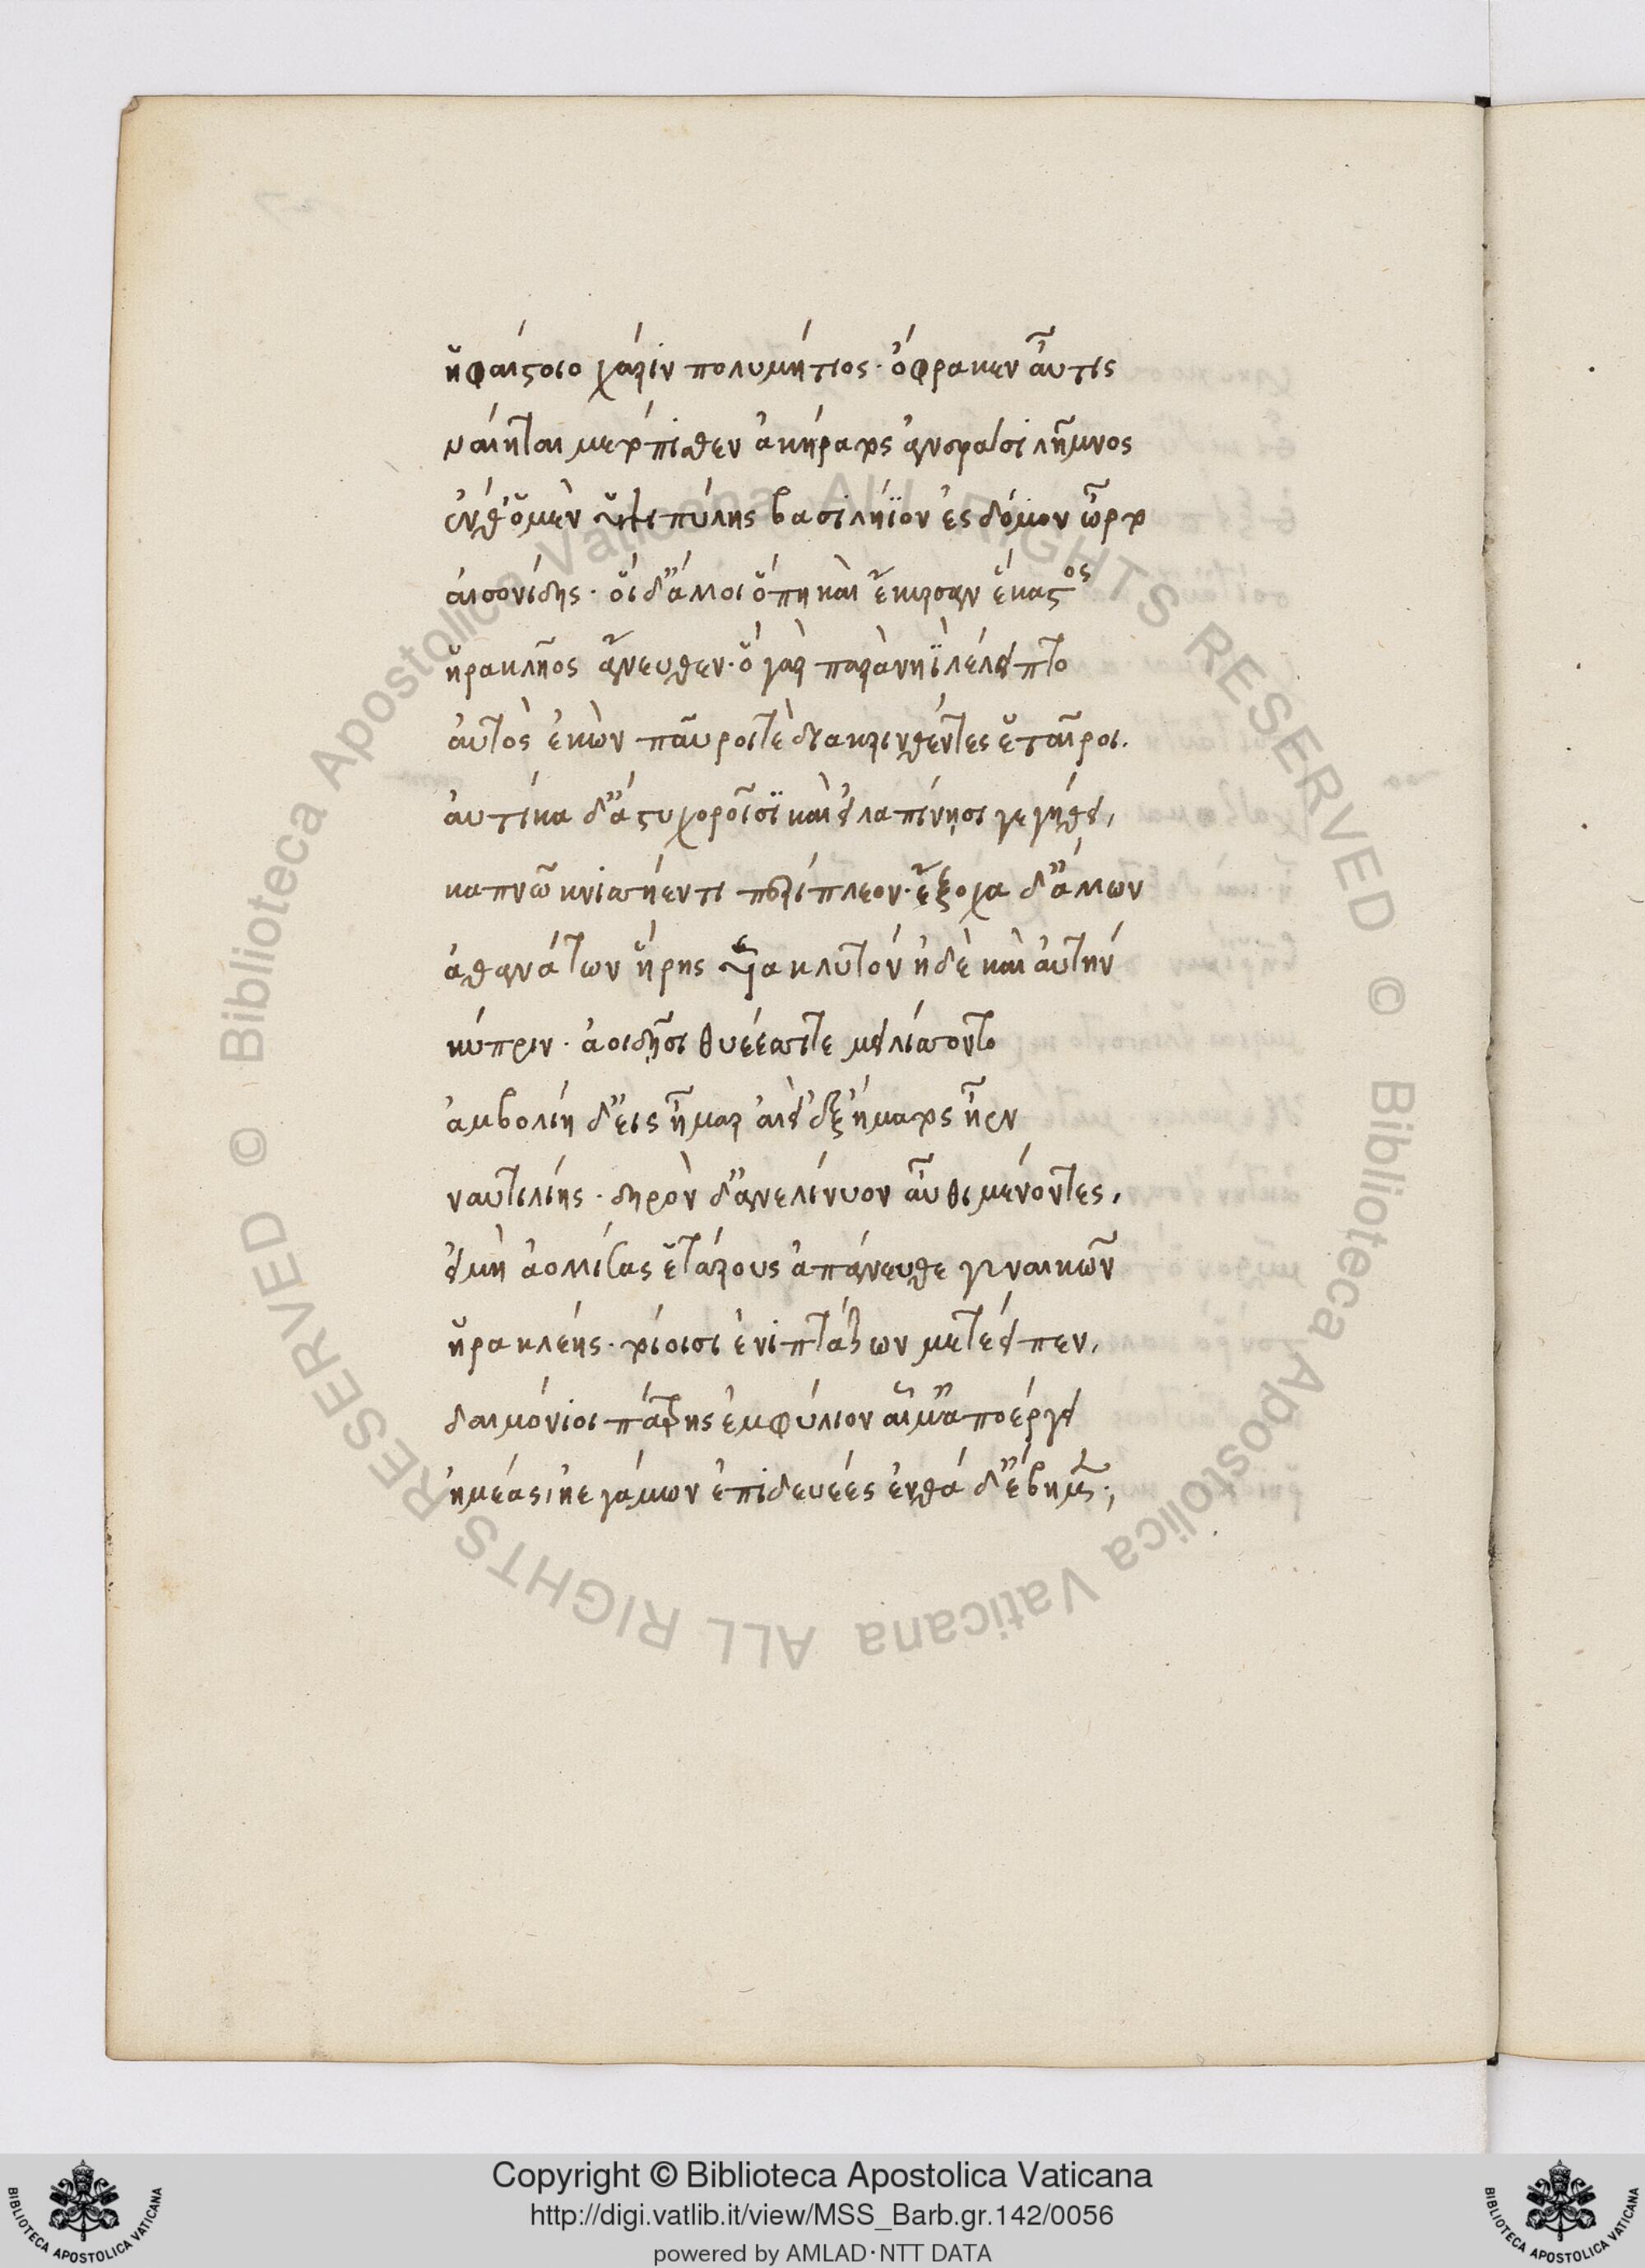 ἡφαίστοιο χάριν πολυμήτιος· ὄφρακεν αὖτις
ναίηται μετόπισθεν ἀκήρατος ἀνδράσι λῆμνος
ἔνθ' ὁ μὲν ὑψιπύλης βασιλήϊον ἐς δόμον ὦρτο
αἰσονίδης· οἱ δ' ἄλλοι ὅπη καὶ ἔκυρσαν ἕκαστος
ἡρακλῆος ἄνευθεν· ὁ γὰρ παρὰ νηῒ λέλειπτο
αὐτὸς ἑκὼν παῦροίτε διακρινθέντες ἑταῖροι.
αὐτίκα δ' ἄστυ χοροῖσϊ καὶ εἰλαπίνῃσι γεγήθει,
καπνῶ κνισήεντι περίπλεον· ἔξοχα δ' ἄλλων
ἀθανάτων ἥρης υἷα κλυτόν ἠδὲ καὶ αὐτήν
κύπριν· ἀοιδῆσι θυέεσσίτε μειλίσσοντο
ἀμβολίη δ' εἰς ἦμαρ ἀεὶ ἐξ ἤματος ἦεν
ναυτιλίης· δηρὸν δ' ἂν ἐλίνυον αὖθι μένοντες,
εἰ μὴ ἀολλίσας ἑτάρους ἀπάνευθε γυναικῶν
ἡρακλέης· τοίοισι ἐνιπτάζων μετέειπεν,
δαιμόνιοι πάτρης ἐμφύλιον αἷμ' ἀποέργει
ἡμέας, ἠε γάμων ἐπιδευέες ἐνθά δ' ἔβημεν;
Copyright © Biblioteca Apostolica Vaticana
http://digi.vatlib.it/view/MSS_Barb.gr.142/0056
powered by AMLAD·NTT DATA
BIBLIOTECA APOSTOLICA VATICANA
BIBLIOTECA APOSTOLICA VATICANA
© Biblioteca Apostolica Vaticana ALL RIGHTS RESERVED
© Biblioteca Apostolica Vaticana ALL RIGHTS RESERVED